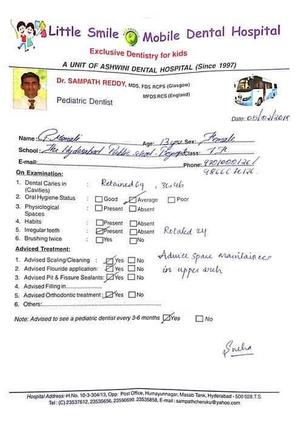 Little Smile Mobile Dental Hospital
Exclusive Dentistry for kids
A UNIT OF ASHWINI DENTAL HOSPITAL (Since 1997)
Dr. SAMPATH REDDY, MDS, FDS RCPS (Glasgow)
MFDS RCS (England)
Pediatric Dentist
Date:
Name: Age: 13 yrs Sex: Female
School: The Hyderabad Public School Class:
E-mail: Phone:
On Examination:
1. Dental Caries in (Cavities)
2. Oral Hygiene Status Good Average Poor
3. Physiological Spaces Present Absent
4. Habits Present Absent
5. Irregular teeth Present Absent Rotated 24
6. Brushing twice Yes No
Adviced Treatment:
1. Advised Scaling/Cleaning : Yes No Advice space maintainer
2. Advised Flouride application: Yes No in upper arch
3. Advised Pit & Fissure Sealants: Yes No
4. Advised Filling in
5. Advised Orthodontic treatment : Yes No
6. Others:
Note: Advised to see a pediatric dentist every 3-6 months Yes No
Sneha
Hospital Address: H.No. 10-3-304/13, Opp. Post Office, Humayunnagar, Masab Tank, Hyderabad - 500 028 T.S.
Tel: (C) 23537612, 23535656, 23590690, 23535858, E-mail : sampathcheruku@yahoo.com